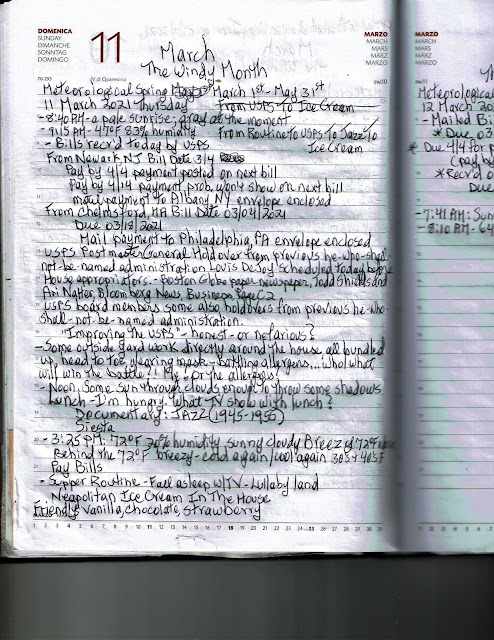 DOMENICA
SUNDAY
DIMANCHE
SONNTAG
DOMINGO
11
MARZO
MARCH
MARS
MÄRZ
MARZO
70-295
IV di Quaresima
March
The Windy Month
Meteorological Spring March 1st - May 31st
11 March 2021 Thursday From USPS To Ice Cream
- 8:40 AM - a pale sunrise; gray at the moment
- 9:15 AM - 47°F 83% humidity From Routine to USPS To Jazz To
Ice Cream
- Bills rec'd today by USPS
From Newark NJ Bill Date 3/4
Pay by 4/4 payment posted on next bill
Pay by 4/14 payment prob. won't show on next bill
mail payment to Albany NY envelope enclosed
From Chelmsford, MA Bill Date 03/04/2021
Due 03/18/2021
Mail payment to Philadelphia, PA envelope enclosed
USPS Postmaster General Hold over from previous he-who-shall-
not-be-named administration Louis DeJoy scheduled today before
House appropriators. - Boston Globe paper newspaper, Todd Shields and
Ari Natter, Bloomberg News, Business Page C2
USPS board members some also holdovers from previous he-who-
shall-not-be-named administration.
"Improving the USPS" - honest - or nefarious?
- Some outside yard work directly around the house all bundled
up, need to toe, wearing mask - battling allergens... Who/what
will win the battle? Me, or the allergens!
- Noon, Some sun through clouds enough to throw some shadows
Lunch - I'm hungry. What TV show with lunch?
Documentary: JAZZ (1945-1955)
Siesta
- 3:25 PM: 72°F 20% humidity sunny cloudy Breezy 72°F
Behind the 72°F breezy - cold again/cool again 30s + 40s F
Pay Bills
- Supper Routine - Fall asleep w/TV - Lullaby land
Neapolitan Ice Cream In The House
Friendly Vanilla, chocolate, strawberry
1 2 3 4 5 6 7 8 9 10 11 12 13 14 15 16 17 18 19 20 21 22 23 24 25 26 27 28 29 30 31
MARZO
MARCH
MARS
MÄRZ
MARZO
Meteorologica
12 March 20
- Mailed Bi
* Due 03
* Due 4/4 for p
(pay b
* Rec'd o
Due
- 7:41 AM: Sun
- 8:10 AM - 64